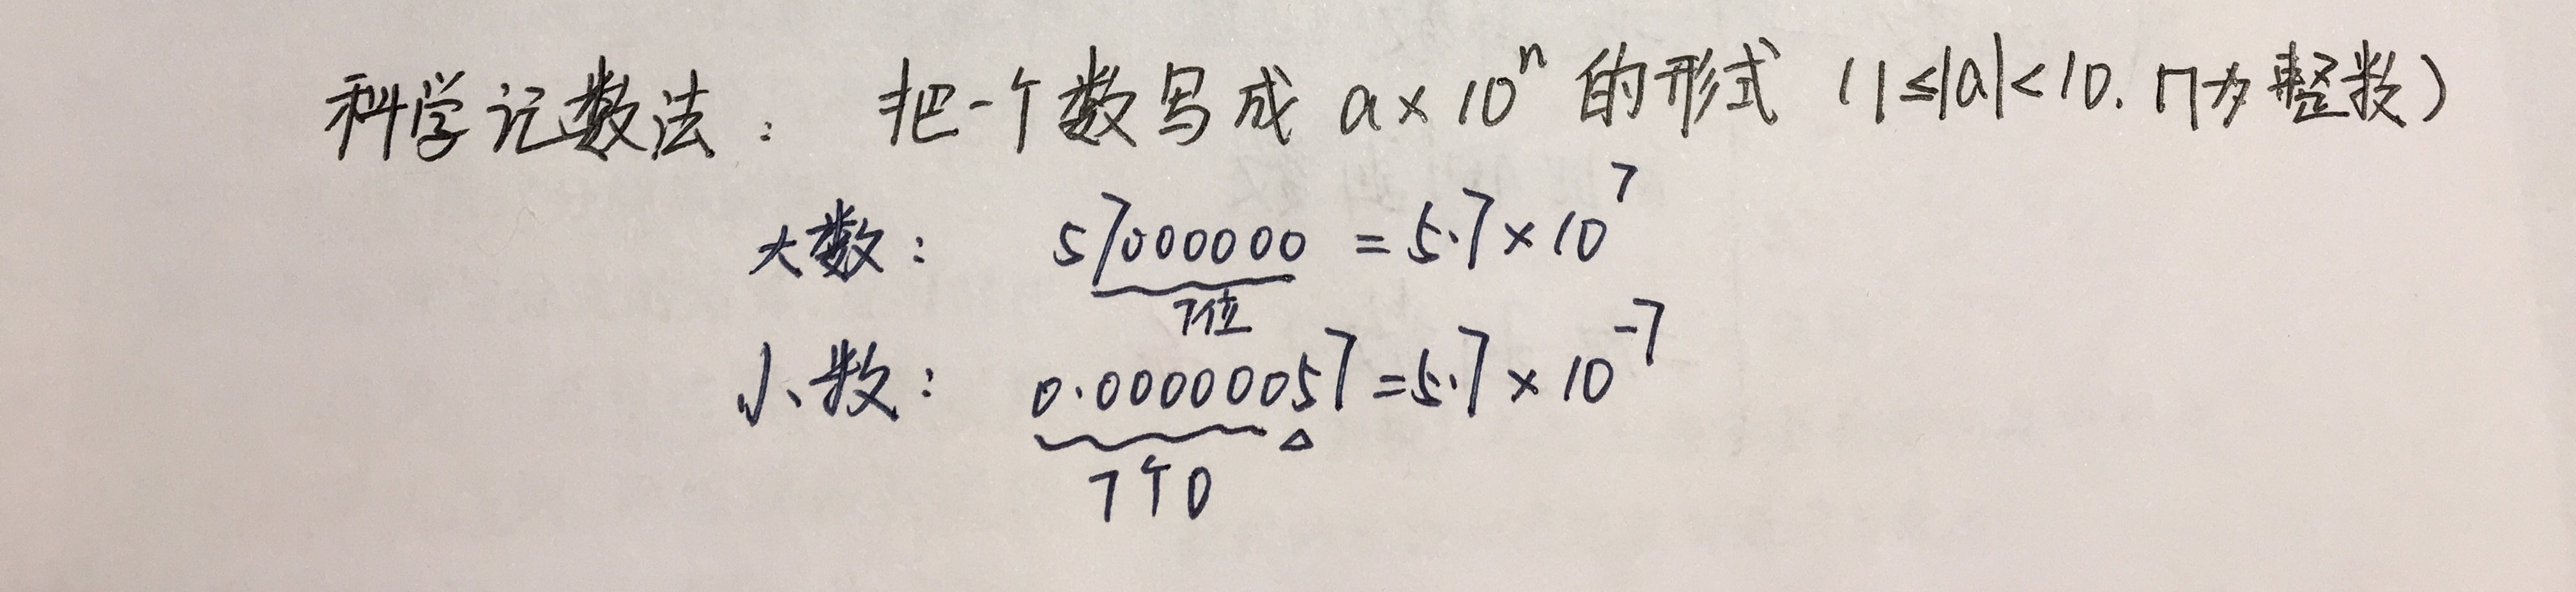 科学记数法： 把一个数写成 a×10ⁿ 的形式 （1≤|a|<10. n为整数）
大数： 57000000 = 5.7×10⁷
7位
小数： 0.00000057=5.7×10⁻⁷
△
7个0